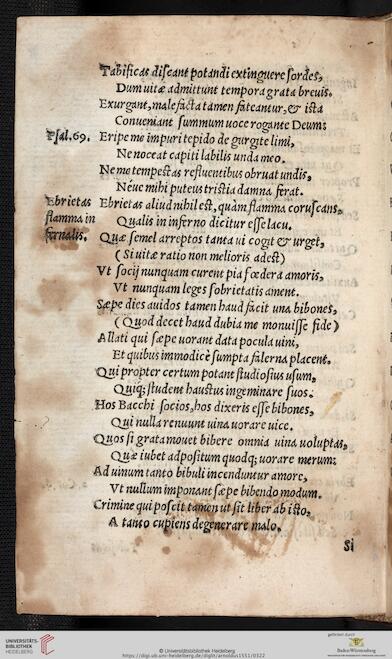 Tabificas discant potandi extinguere sordes,
Dum uitæ admittunt tempora grata breuis.
Exurgant, male facta tamen fateantur, & ista
Conueniant summum uoce rogante Deum:
Psal. 69. Eripe me impuri tepido de gurgite limi,
Ne noceat capiti labilis unda meo.
Ne me tempestas refluentibus obruat undis,
Néue mihi puteus tristia damna ferat.
Ebrietas flamma in fernalis. Ebrietas aliud nihil est, quàm flamma coruscans,
Qualis in inferno dicitur esse lacu.
Quæ semel arreptos tanta ui cogit & urget,
( Si uitæ ratio non melioris adest )
Vt socij nunquam curent pia fœdera amoris,
Vt nunquam leges sobrietatis ament.
Sæpe dies auidos tamen haud facit una bibones,
( Quod decet haud dubia me monuisse fide )
Allati qui sæpe uorant data pocula uini,
Et quibus immodicè sumpta falerna placent.
Qui propter certum potant studiosius usum,
Quiq; student haustus ingeminare suos.
Hos Bacchi socios, hos dixeris esse bibones,
Qui nulla renuunt uina uorare uice.
Quos si grata mouet bibere omnia uina uoluptas,
Quæ iubet adpositum quodq; uorare merum:
Ad uinum tanto bibuli incenduntur amore,
Vt nullum imponant sæpe bibendo modum.
Crimine qui poscit tamen ut sit liber ab isto,
A tanto cupiens degenerare malo.
Si
UNIVERSITÄTS-
BIBLIOTHEK
HEIDELBERG
https://digi.ub.uni-heidelberg.de/diglit/arnoldus1551/0322
© Universitätsbibliothek Heidelberg
gefördert durch
Baden-Württemberg